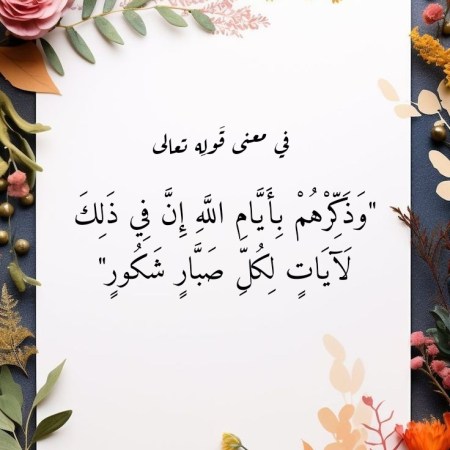 في معنى قَولِه تعالى
"وَذَكِّرْهُمْ بِأَيَّامِ اللَّهِ إِنَّ فِي ذَلِكَ
لَآيَاتٍ لِكُلِّ صَبَّارٍ شَكُورٍ"